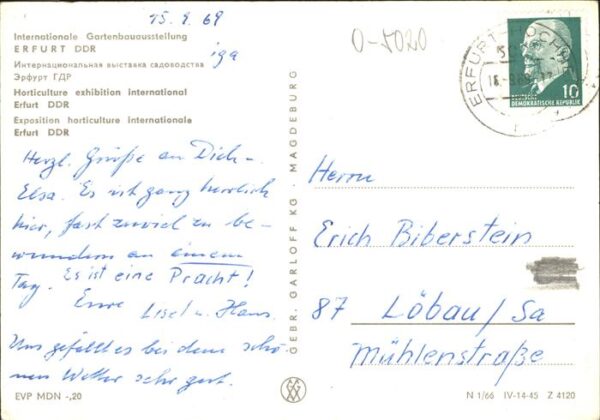 15.9.69
Internationale Gartenbauausstellung
ERFURT DDR
iga
Интернациональная выставка садоводства
Эрфурт ГДР
Horticulture exhibition international
Erfurt DDR
Exposition horticulture internationale
Erfurt DDR
0-5020
ERFURT
10
DEMOKRATISCHE REPUBLIK
Herzl. Grüße an Dich –
Elsa. Es ist ganz herrlich
hier, fast zuviel zu be-
wundern an einem
Tag. Es ist eine Pracht!
Eure
Lisel u. Hans.
Uns gefällt es bei dem schö-
nen Wetter sehr gut.
EVP MDN -,20
GEBR. GARLOFF KG · MAGDEBURG
Herrn
Erich Biberstein
87 Löbau/Sa
Mühlenstraße
N 1/66 IV-14-45 Z 4120